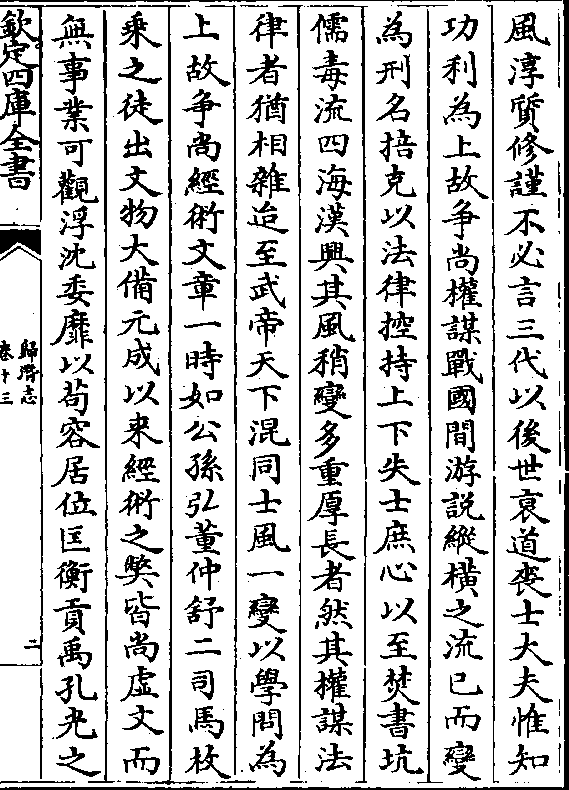 風淳質修謹不必言三代以後世衰道喪士大夫惟知
功利為上故爭尚權謀戰國間游說縱橫之流已而變
為刑名掊克以法律控持上下失士庶心以至焚書坑
儒毒流四海漢興其風稍變多重厚長者然其權謀法
律者猶相雜迨至武帝天下混同士風一變以學問為
上故爭尚經術文章一時如公孫弘董仲舒二司馬枚
乘之徒出文物大備元成以来經術之獘皆尚虛文而
無事業可觀浮沈委靡以苟容居位匡衡貢禹孔光之
欽定四庫全書
歸潛志
卷十三
二